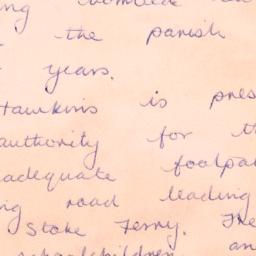 the parish
years.
Hawkins is pres
authority for th
adequate footpat
road leading
Stoke Ferry. The
schoolchildren an